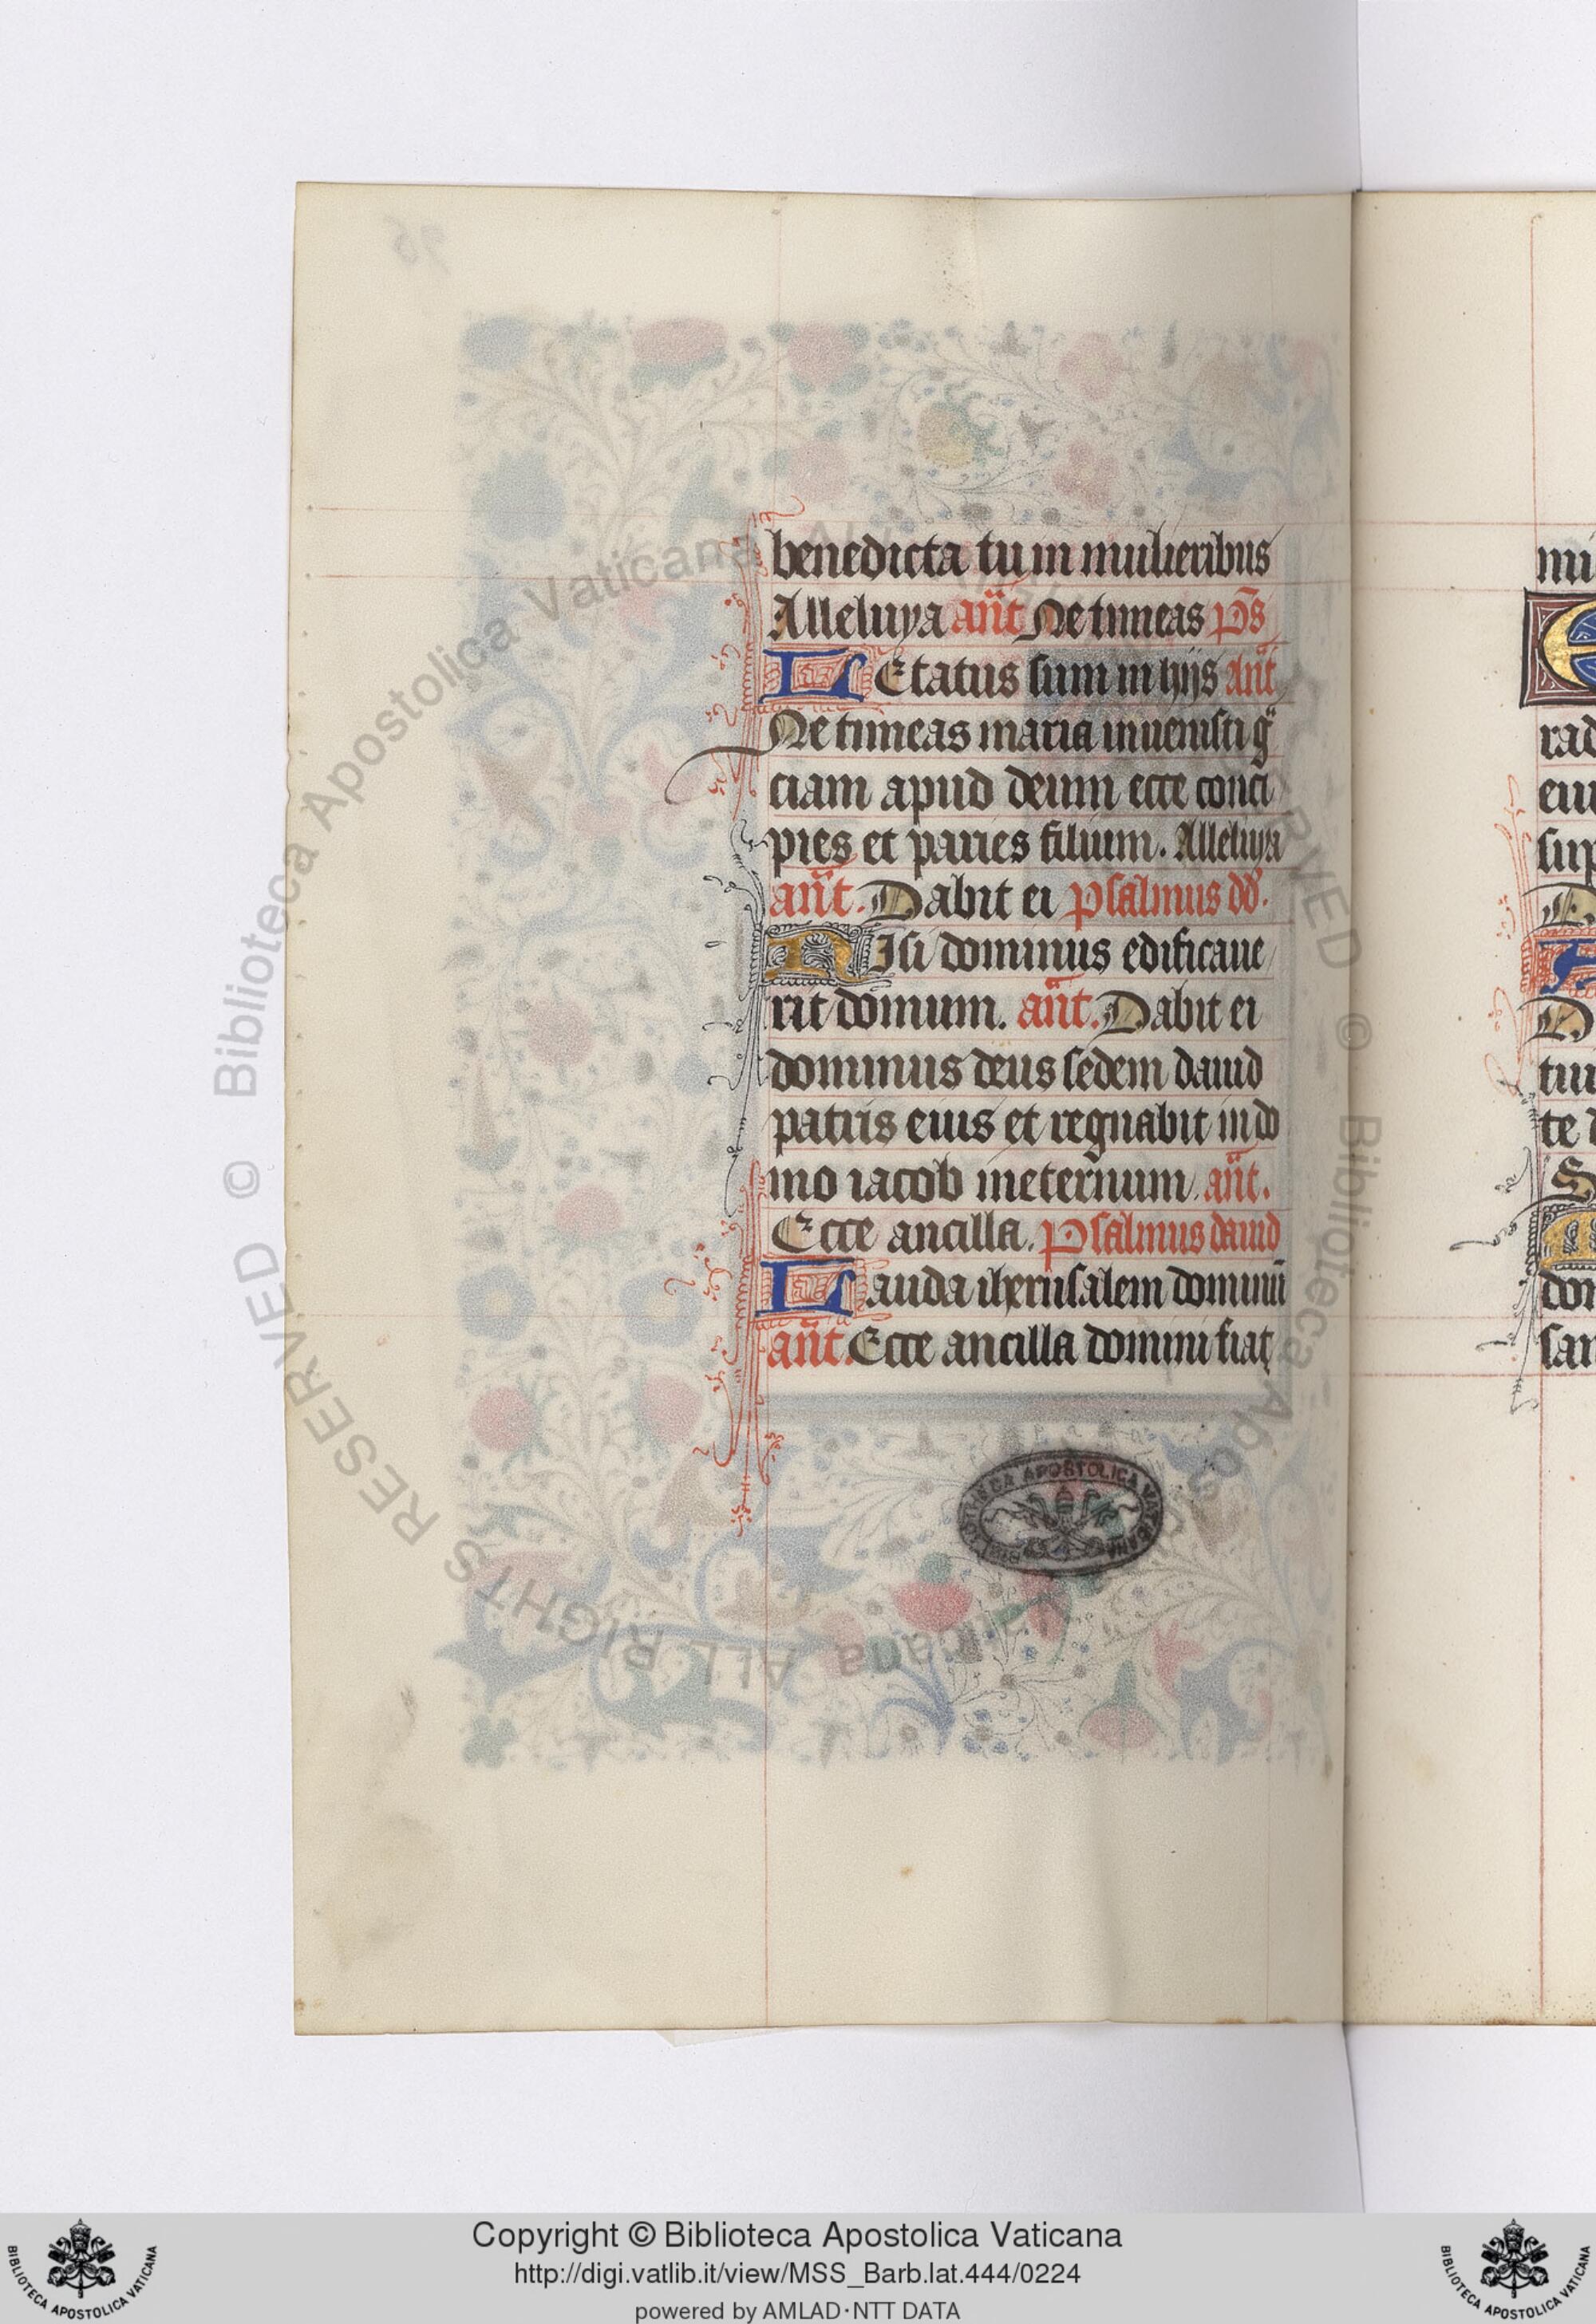 benedicta tu in mulieribus
Alleluya an̄t Ne timeas ps̄
LEtatus sum in hijs an̄t
Ne timeas maria inuenisti gᵃ
ciam apud deum ecce conci
pies et paries filium. Alleluya
an̄t. Dabit ei psalmus dd̄.
NIsi dominus edificaue
rit domum. an̄t. Dabit ei
dominus deus sedem dauid
patris eius et regnabit in do
mo iacob ineternum. an̄t.
Ecce ancilla. Psalmus dauid
Lauda iherusalem dominū
an̄t. Ecce ancilla domini fiat
BIBLIOTHECA APOSTOLICA VATICANA
© Biblioteca Apostolica Vaticana ALL RIGHTS RESERVED
Copyright © Biblioteca Apostolica Vaticana
http://digi.vatlib.it/view/MSS_Barb.lat.444/0224
powered by AMLAD·NTT DATA
BIBLIOTECA APOSTOLICA VATICANA
BIBLIOTECA APOSTOLICA VATICANA